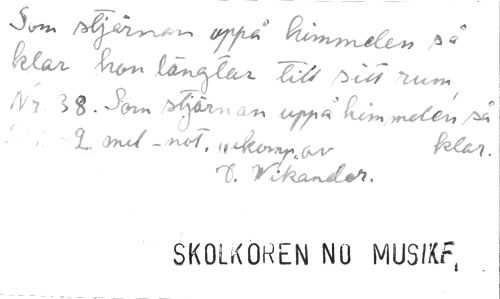 Som stjärnan uppå himmelen så
klar hon längtar till sitt rum,
Nr. 38. Som stjärnan uppå himmelen så
2 mel-not. "komp. av klar.
D. Wikander.
SKOLKÖREN NO MUSIKF,